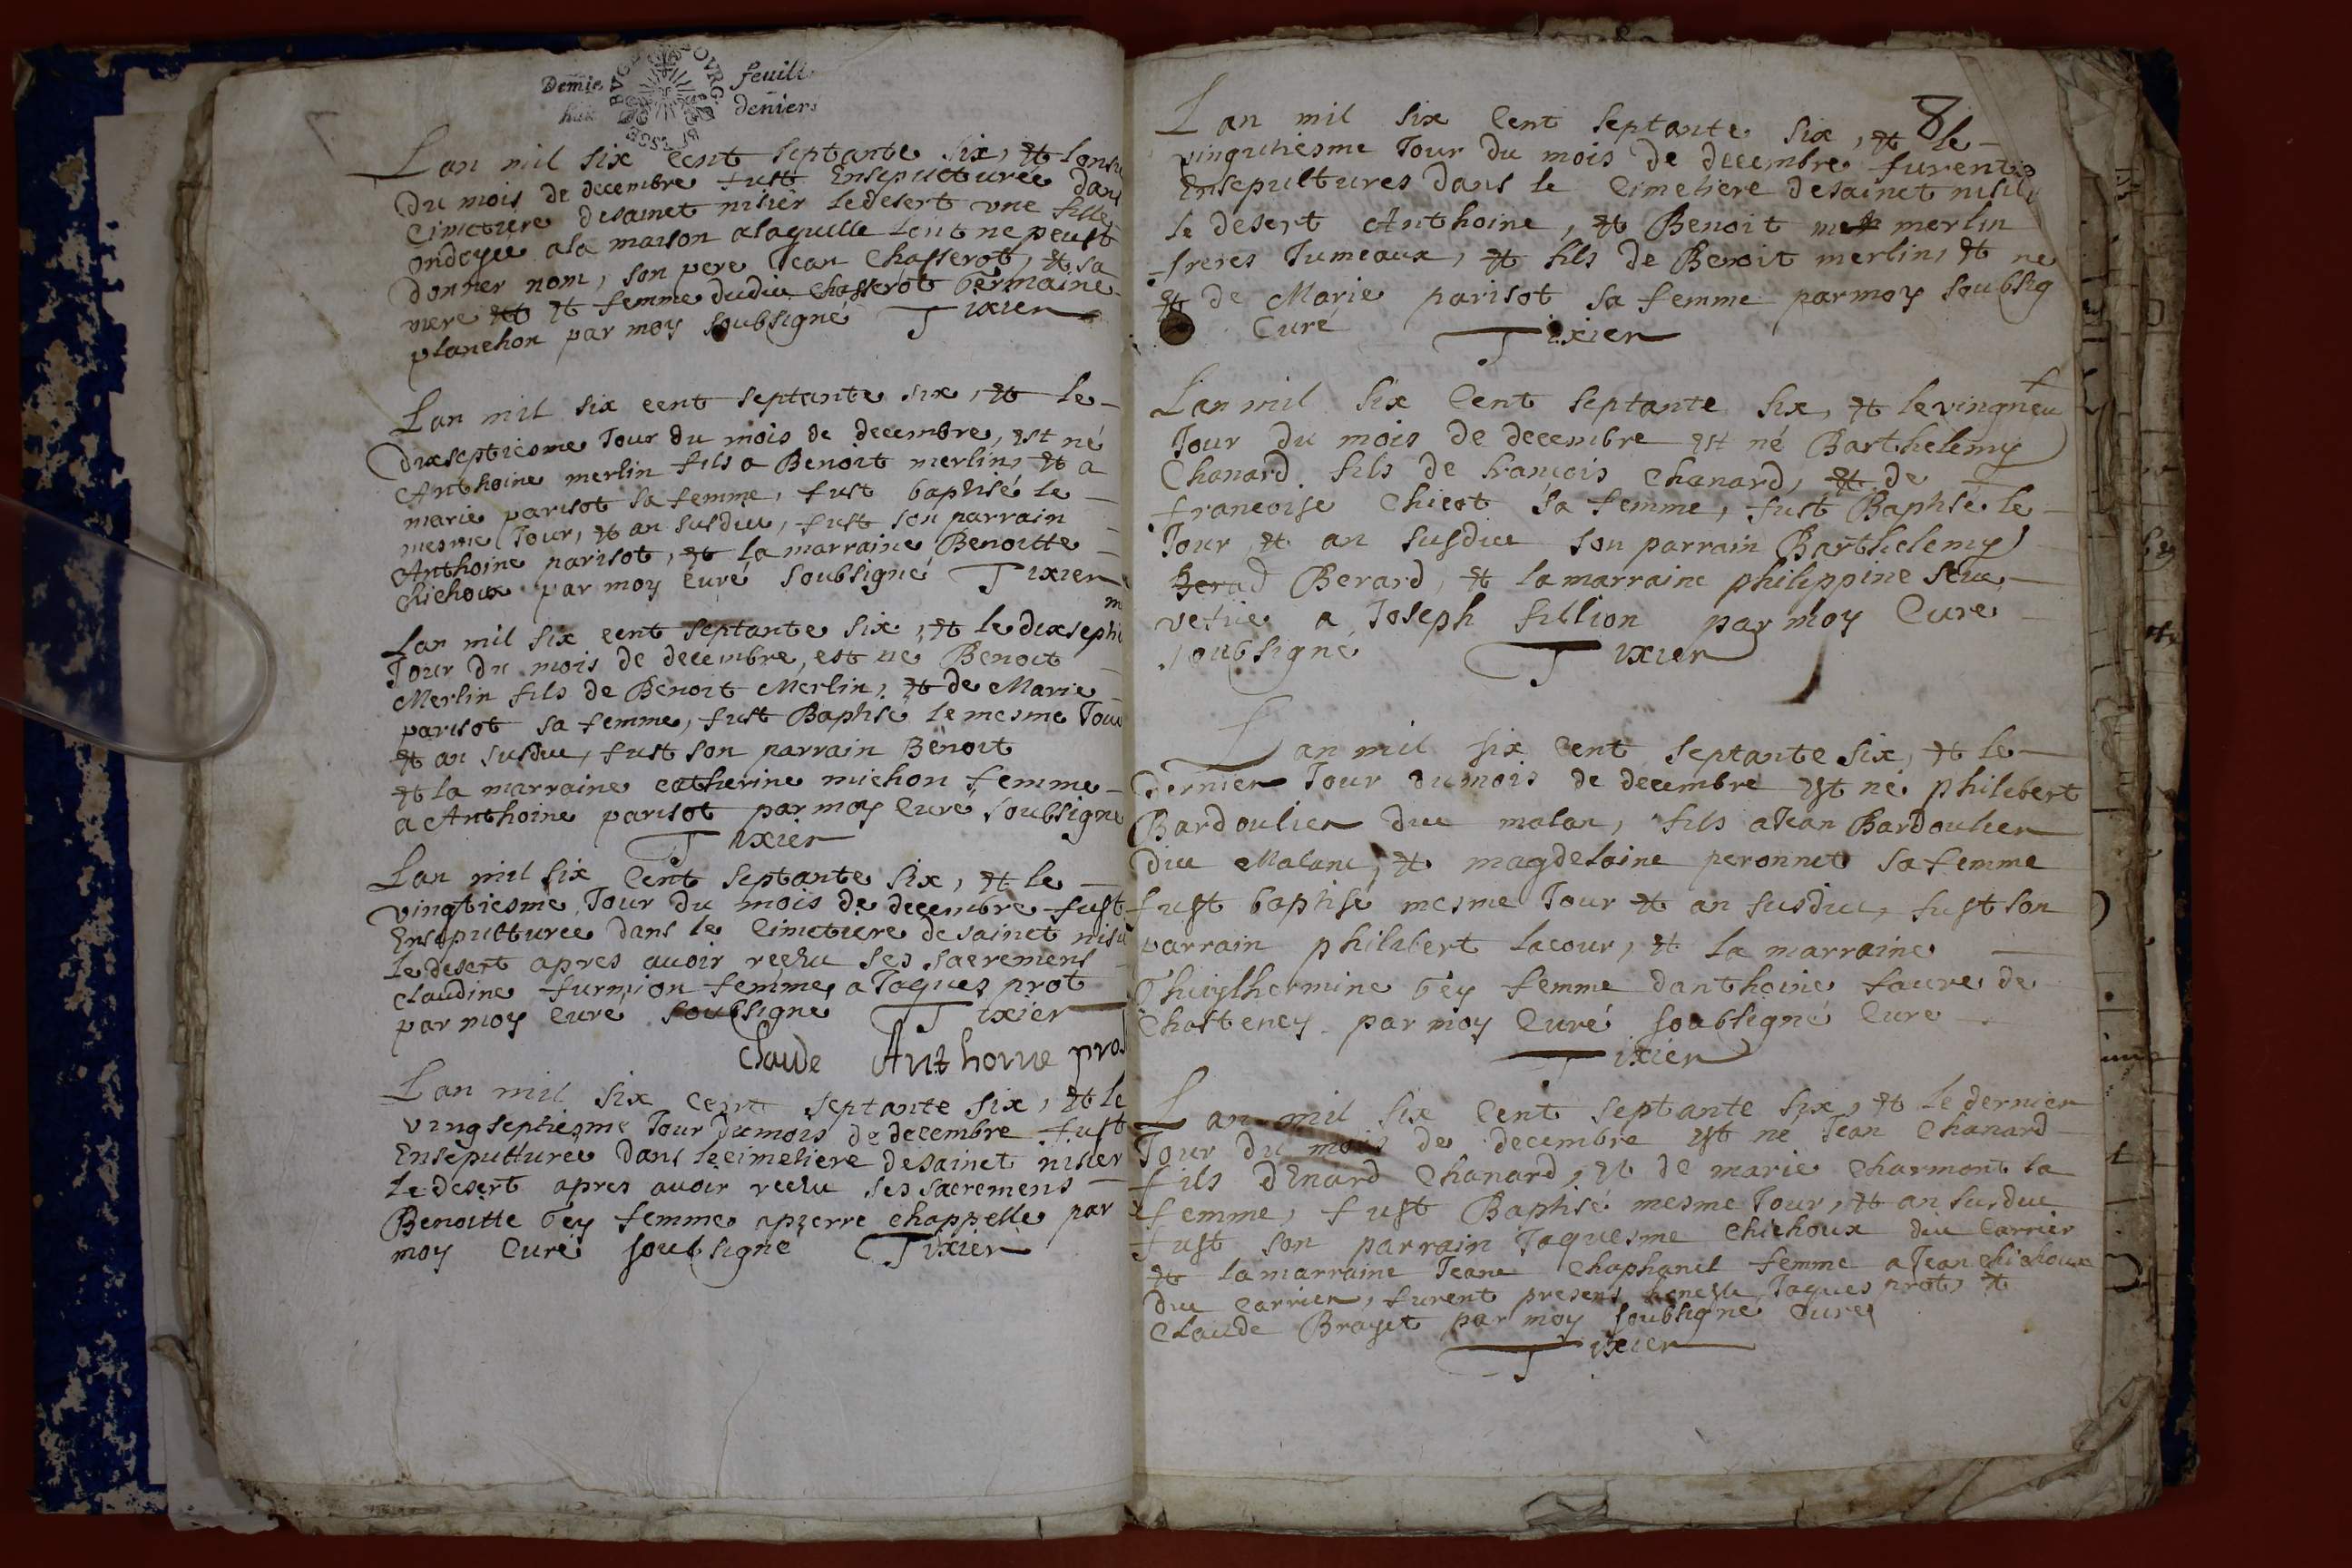 Demie feuill
huit deniers
BVGE BOVRG BRESSE
Lan mil six cent septante six, et lonsi
du mois de decembre fust Ensepulturée dans
Cimetiere desainct nisier ledesert vne fille
ondoyee ala maison alaquelle lont ne peust
donner nom, son pere Jean Chasserot, et sa
mere et et femme dudic Chasserot Germaine
planchon par moy soubsigné Tixier
Lan mil six cent septante six, et le
dixseptiesme Jour du mois de decembre, est né
Anthoine merlin fils a Benoit merlin, et a
marie parisot sa femme, fust baptisé le
mesme Jour, et an susdict, fust son parrain
Anthoine parisot, et la marraine Benoitte
Chichoux par moy Curé soubsigné Tixier
m
Lan mil six cent septante six, et le dixsepti
Jour du mois de decembre, est né Benoit
Merlin fils de Benoit Merlin, et de Marie
parisot sa femme, fust Baptisé le mesme Jour
et an susdict, fust son parrain Benoit
et la marraine catherine michon femme
a Anthoine parisot par moy Curé soubsigné
Tixier
Lan mil six Cent septante six, et le
vingtiesme Jour du mois de decembre fust
Ensepulturee dans le Cimetiere desainct nisie
le desert apres auoir reçeu ses sacremens
Claudine furnion femme a Jaques prot
par moy Cure soubsigne Tixier
Claude Anthoine prost
Lan mil six cent septante six, et le
vingseptiesme Jour dumois de decembre fust
Ensepulturee dans lecimetiere desainct nisier
le desert apres auoir reeçu ses sacremens
Benoitte Gey femme apierre chappelle par
moy Curé soubsigne Tixier
8
Lan mil six Cent septante six, et le
vingutiesme Jour du mois de decembre furent
Ensepultures dans le Cimetiere desainct nisie
le desert Anthoine, et Benoit mer merlin
freres Jumeaux, et fils de Benoit merlin, et
et de Marie parisot sa femme parmoy soubsigné
Curé Tixier
Lan mil six Cent septante six, et le vingneu
Jour du mois de decembre est né Barthelemy
Chanard fils de francois Chanard, et de
francoise Chicot sa femme, fust Baptisé le
Jour et an susdict son parrain Barthelemy
Berad Berard, et la marraine philippine
vefue a Joseph fillion par moy Cure
soubsigné Tixier
Lan mil six Cent septante six, et le
dernier Jour dumois de decembre est né philebert
Bardoulier dict malan, fils aJean Bardoulier
dict Malanc, et magdelaine peronnet sa femme
fust baptise mesme Jour et an susdict, fust son
parrain philibert lacour, et la marraine
Gey femme danthoine faure de
Chasteney par moy Curé soubsigné Cure
Tixier
Lan mil six Cent septante six, et le dernier
Jour du mois de decembre est né Jean Chanard
fils dEnard Chanard, et de marie Charmont sa
femme, fust Baptisé mesme Jour, et an susdict
fust son parrain Jaquesme Chichoux dict Carrier
et lamarraine Jeane Chaphanel femme aJean chichoux
dict Carrier, furent presens Jaques prot, et
Claude Brayet par moy soubsigne Cure
Tixier